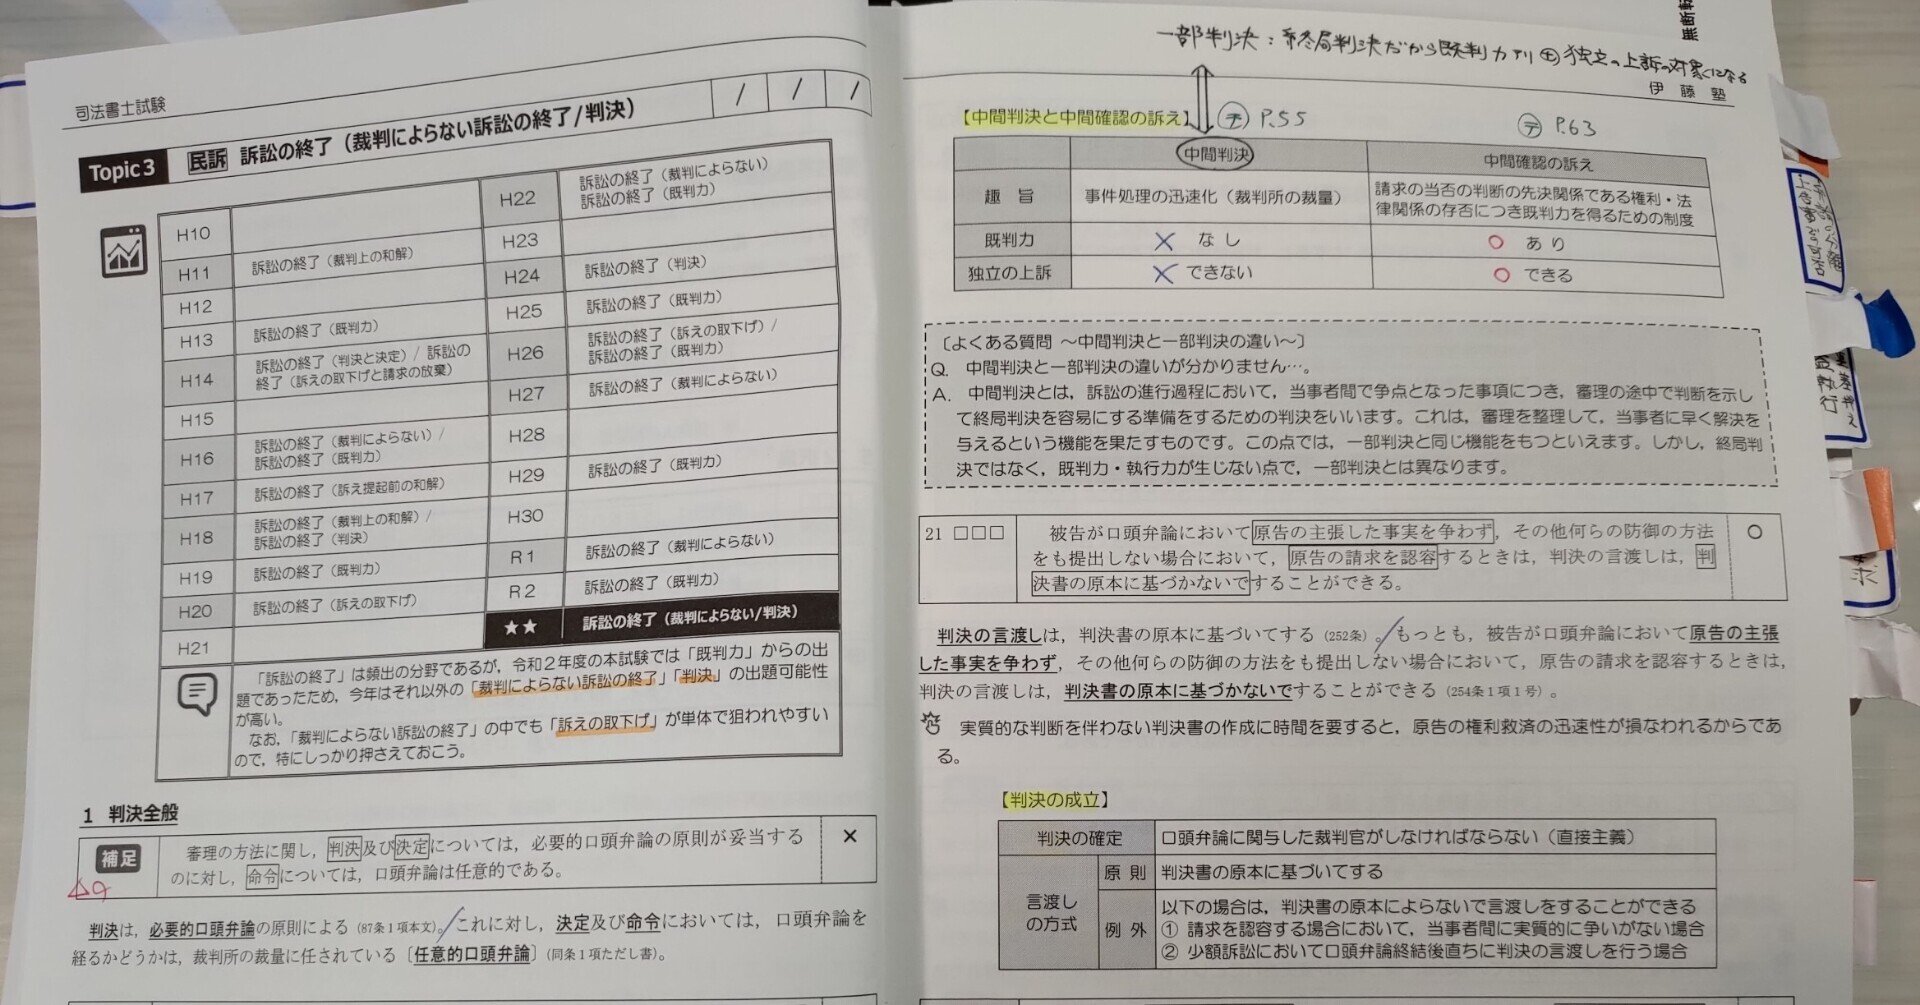 司法書士試験
Topic 3 民訴 訴訟の終了（裁判によらない訴訟の終了/判決）
/ / /
H10
H11 訴訟の終了（裁判上の和解）
H12
H13 訴訟の終了（既判力）
H14 訴訟の終了（判決と決定）/ 訴訟の
終了（訴えの取下げと請求の放棄）
H15
H16 訴訟の終了（裁判によらない）/
訴訟の終了（既判力）
H17 訴訟の終了（訴え提起前の和解）
H18 訴訟の終了（裁判上の和解）/
訴訟の終了（判決）
H19 訴訟の終了（既判力）
H20 訴訟の終了（訴えの取下げ）
H21
H22 訴訟の終了（裁判によらない）
訴訟の終了（既判力）
H23
H24 訴訟の終了（判決）
H25 訴訟の終了（既判力）
H26 訴訟の終了（訴えの取下げ）/
訴訟の終了（既判力）
H27 訴訟の終了（裁判によらない）
H28
H29 訴訟の終了（既判力）
H30
R1 訴訟の終了（裁判によらない）
R2 訴訟の終了（既判力）
★★ 訴訟の終了（裁判によらない/判決）
「訴訟の終了」は頻出の分野であるが，令和２年度の本試験では「既判力」からの出
題であったため，今年はそれ以外の「裁判によらない訴訟の終了」「判決」の出題可能性
が高い。
なお，「裁判によらない訴訟の終了」の中でも「訴えの取下げ」が単体で狙われやすい
ので，特にしっかり押さえておこう。
1 判決全般
補足 審理の方法に関し，判決及び決定については，必要的口頭弁論の原則が妥当する ×
のに対し，命令については，口頭弁論は任意的である。
判決は，必要的口頭弁論の原則による（87条１項本文）。これに対し，決定及び命令においては，口頭弁論を
経るかどうかは，裁判所の裁量に任されている〔任意的口頭弁論〕（同条１項ただし書）。
無断転
一部判決：終局判決だから既判力アリ 独立の上訴の対象になる
伊藤塾
【中間判決と中間確認の訴え】 テ P.55 テ P.63
中間判決 中間確認の訴え
趣旨 事件処理の迅速化（裁判所の裁量） 請求の当否の判断の先決関係である権利・法
律関係の存否につき既判力を得るための制度
既判力 × なし ○ あり
独立の上訴 × できない ○ できる
〔よくある質問 ～中間判決と一部判決の違い～〕
Q. 中間判決と一部判決の違いが分かりません…。
A. 中間判決とは，訴訟の進行過程において，当事者間で争点となった事項につき，審理の途中で判断を示し
て終局判決を容易にする準備をするための判決をいいます。これは，審理を整理して，当事者に早く解決を
与えるという機能を果たすものです。この点では，一部判決と同じ機能をもつといえます。しかし，終局判
決ではなく，既判力・執行力が生じない点で，一部判決とは異なります。
21 □□□ 被告が口頭弁論において原告の主張した事実を争わず，その他何らの防御の方法 ○
をも提出しない場合において，原告の請求を認容するときは，判決の言渡しは，判
決書の原本に基づかないですることができる。
判決の言渡しは，判決書の原本に基づいてする（252条）。もっとも，被告が口頭弁論において原告の主張
した事実を争わず，その他何らの防御の方法をも提出しない場合において，原告の請求を認容するときは，
判決の言渡しは，判決書の原本に基づかないですることができる（254条１項１号）。
実質的な判断を伴わない判決書の作成に時間を要すると，原告の権利救済の迅速性が損なわれるからであ
る。
【判決の成立】
判決の確定 口頭弁論に関与した裁判官がしなければならない（直接主義）
言渡しの方式 原則 判決書の原本に基づいてする
例外 以下の場合は，判決書の原本によらないで言渡しをすることができる
① 請求を認容する場合において，当事者間に実質的に争いがない場合
② 少額訴訟において口頭弁論終結後直ちに判決の言渡しを行う場合